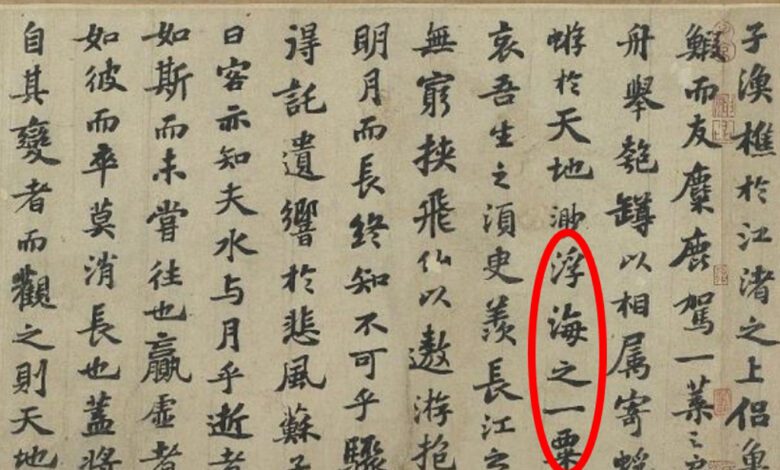 子漁樵於江渚之上侶魚
鰕而友麋鹿駕一葉之
舟舉匏罇以相属寄蜉
蝣於天地渺浮海之一粟
哀吾生之須臾羨長江之
無窮挾飛仙以遨游抱
明月而長終知不可乎驟
得託遺響於悲風蘇子
曰客亦知夫水与月乎逝者
如斯而未嘗往也贏虛者
如彼而卒莫消長也蓋將
自其變者而觀之則天地